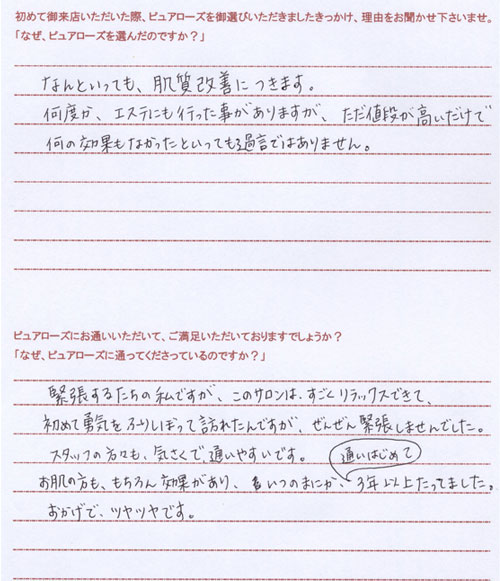 初めて御来店いただいた際、ピュアローズを御選びいただきましたきっかけ、理由をお聞かせ下さいませ。
「なぜ、ピュアローズを選んだのですか？」
なんといっても、肌質改善につきます。
何度か、エステにも行った事がありますが、ただ値段が高いだけで
何の効果もなかったといっても過言ではありません。
ピュアローズにお通いいただいて、ご満足いただいておりますでしょうか？
「なぜ、ピュアローズに通ってくださっているのですか？」
緊張するたちの私ですが、このサロンは、すごくリラックスできて、
初めて勇気をふりしぼって訪れたんですが、ぜんぜん緊張しませんでした。
スタッフの方々も、気さくで、通いやすいです。
通いはじめて
お肌の方も、もちろん効果があり、いつのまにか、3年以上たってました。
おかげで、ツヤツヤです。